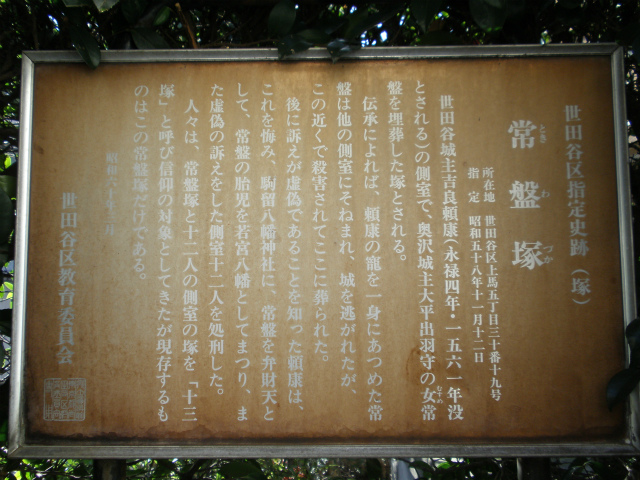 世田谷区指定史跡（塚）
常盤塚
ときわづか
所在地　世田谷区上馬五丁目三十番十九号
指定　昭和五十八年十一月十二日
世田谷城主吉良頼康（永禄四年・一五六一年没
とされる）の側室で、奥沢城主大平出羽守の女常
むすめ
盤を埋葬した塚とされる。
伝承によれば、頼康の寵を一身にあつめた常
盤は他の側室にそねまれ、城を逃がれたが、
この近くで殺害されてここに葬られた。
後に訴えが虚偽であることを知った頼康は、
これを悔み、駒留八幡神社に、常盤を弁財天と
して、常盤の胎児を若宮八幡としてまつり、ま
た虚偽の訴えをした側室十二人を処刑した。
人々は、常盤塚と十二人の側室の塚を「十三
塚」と呼び信仰の対象としてきたが現存するも
のはこの常盤塚だけである。
世田谷区教育委員会